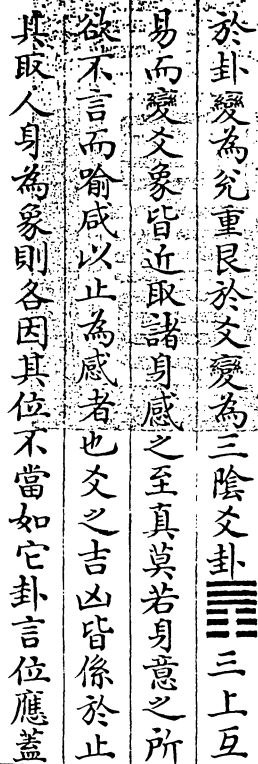 於卦變為兊重艮於爻變為三陰爻卦䷞三上互
易而變爻象皆近取諸身感之至真莫若身意之所
欲不言而喻咸以止為感者也爻之吉凶皆係於止
其取人身為象則各因其位不當如它卦言位應蓋